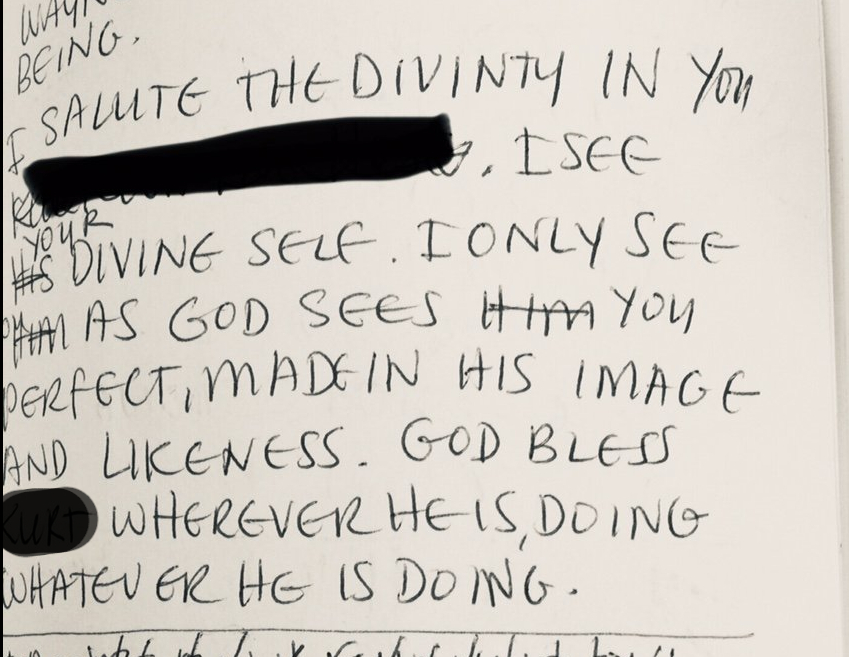 BEING.
I SALUTE THE DIVINTY IN YOU
. I SEE
YOUR
HIS DIVINE SELF. I ONLY SEE
HIM AS GOD SEES HIM YOU
PERFECT, MADE IN HIS IMAGE
AND LIKENESS. GOD BLESS
KURT WHEREVER HE IS, DOING
WHATEVER HE IS DOING.